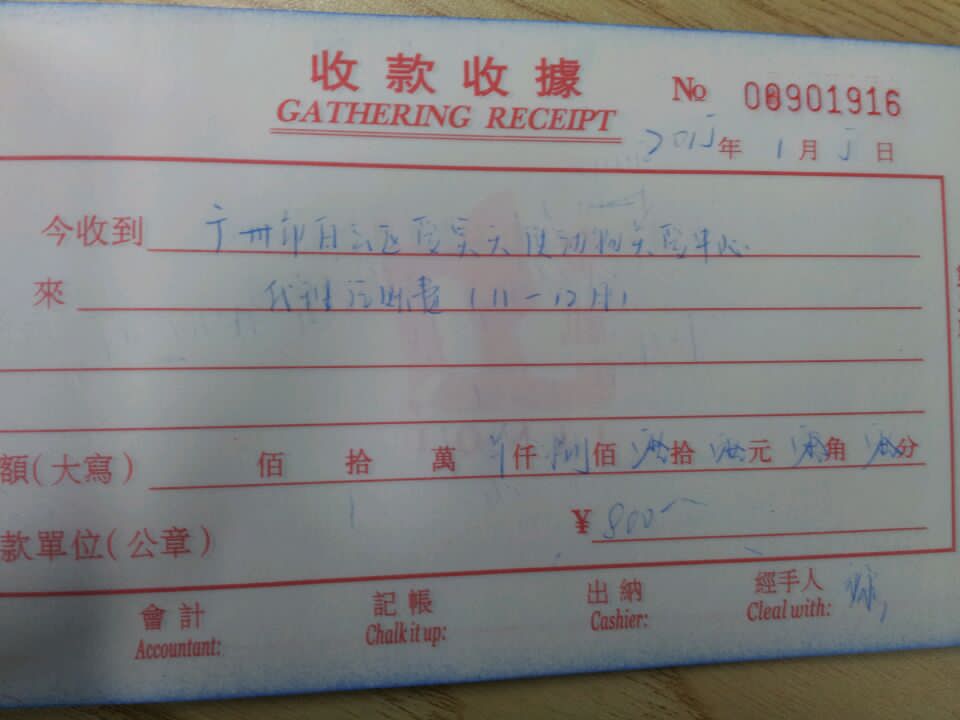 收款收據
GATHERING RECEIPT
№ 00901916
2015年1月5日
今收到 广州市白云区
來 代理记账费(11-12月)
額(大寫) 佰 拾 萬 仟 捌佰 零拾 零元 零角 零分
款單位(公章) ¥ 800
會計 記帳 出納 經手人
Accountant: Chalk it up: Cashier: Cleal with: